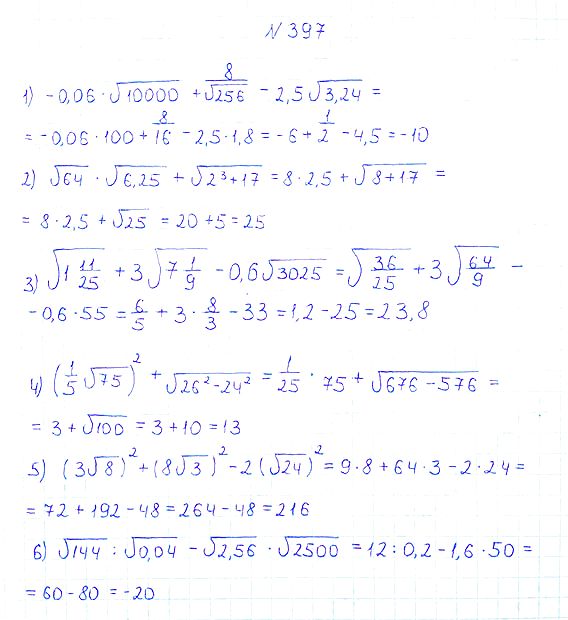 № 397
1) -0,06 · √10000 + 8/√256 - 2,5√3,24 =
= -0,06 · 100 + 8/16 - 2,5 · 1,8 = -6 + 1/2 - 4,5 = -10
2) √64 · √6,25 + √2³+17 = 8 · 2,5 + √8+17 =
= 8 · 2,5 + √25 = 20 + 5 = 25
3) √1 11/25 + 3√7 1/9 - 0,6√3025 = √36/25 + 3√64/9 -
- 0,6 · 55 = 6/5 + 3 · 8/3 - 33 = 1,2 - 25 = 23,8
4) (1/5 √75)² + √26² - 24² = 1/25 · 75 + √676 - 576 =
= 3 + √100 = 3 + 10 = 13
5) (3√8)² + (8√3)² - 2(√24)² = 9 · 8 + 64 · 3 - 2 · 24 =
= 72 + 192 - 48 = 264 - 48 = 216
6) √144 : √0,04 - √2,56 · √2500 = 12 : 0,2 - 1,6 · 50 =
= 60 - 80 = -20